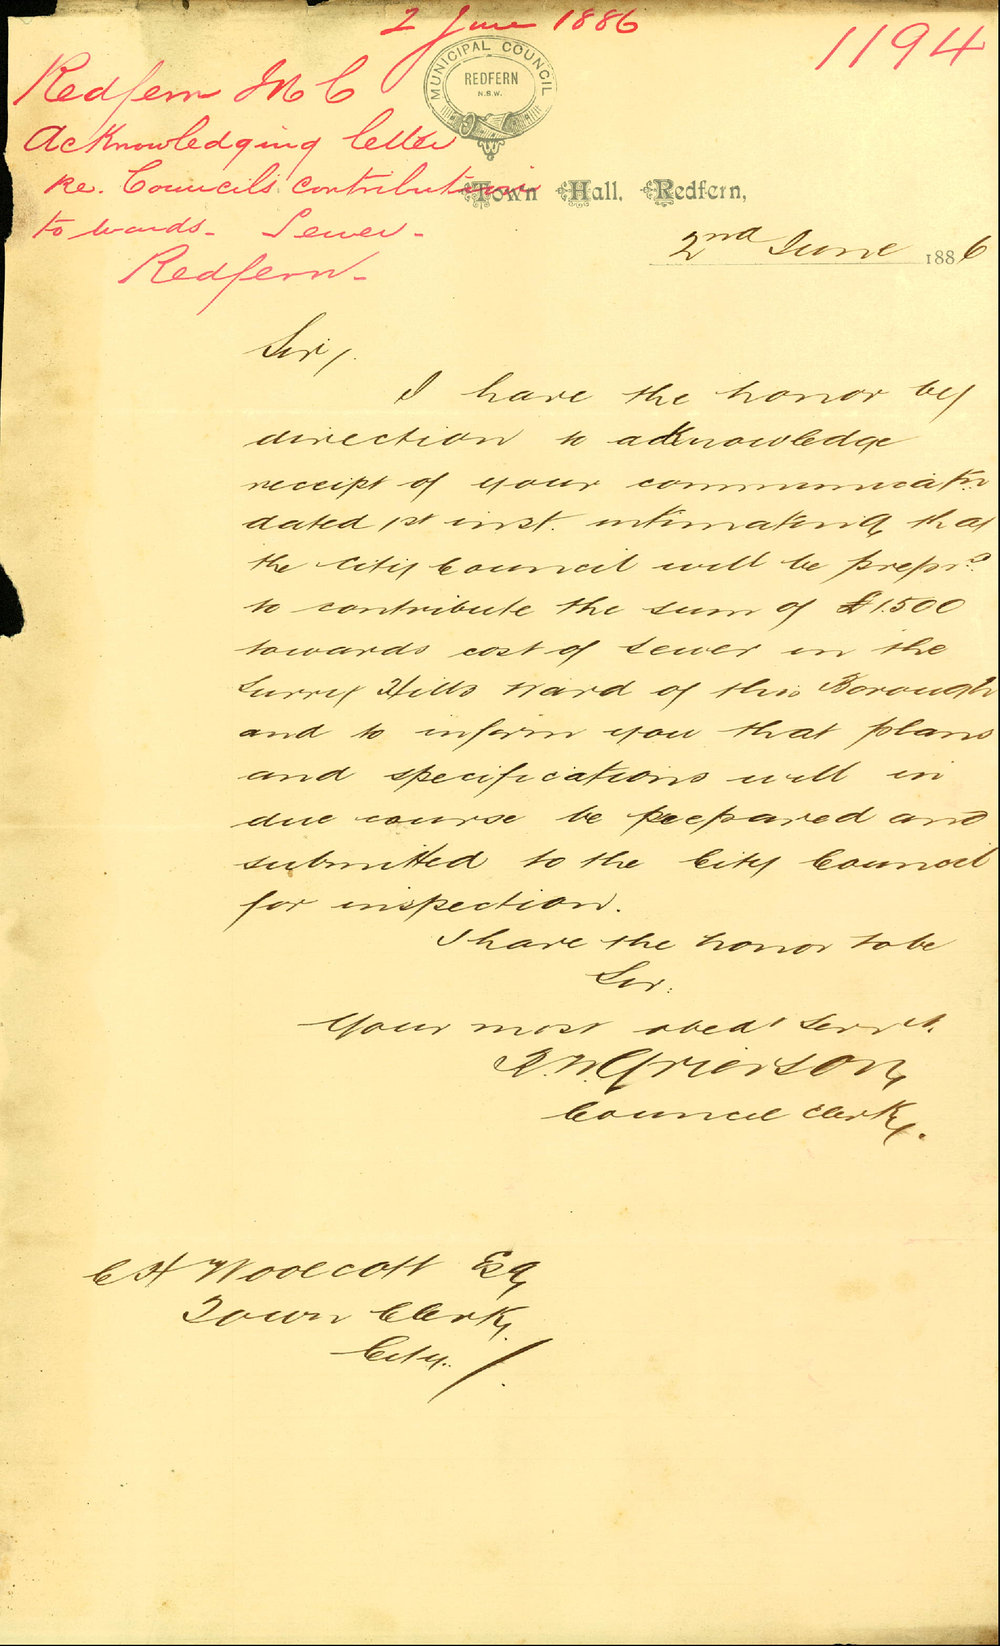 2 June 1886
1194
Redfern M C
Acknowledging letter
re. Councils contribution
towards - Sewer -
Redfern -
MUNICIPAL COUNCIL
REDFERN
N.S.W.
Town Hall, Redfern,
2nd June 1886
Sir,
I have the honor by
direction to acknowledge
receipt of your communicatn
dated 1st inst. intimating that
the City Council will be prepd
to contribute the sum of £1500
towards cost of Sewer in the
Surry Hills Ward of this Borough
and to inform you that plans
and specifications will in
due course be prepared and
submitted to the City Council
for inspection.
I have the honor to be
Sir.
Your most obedt Servt.
Grierson
Council Clerk.
C H Woolcott Esq
Town Clerk
City.